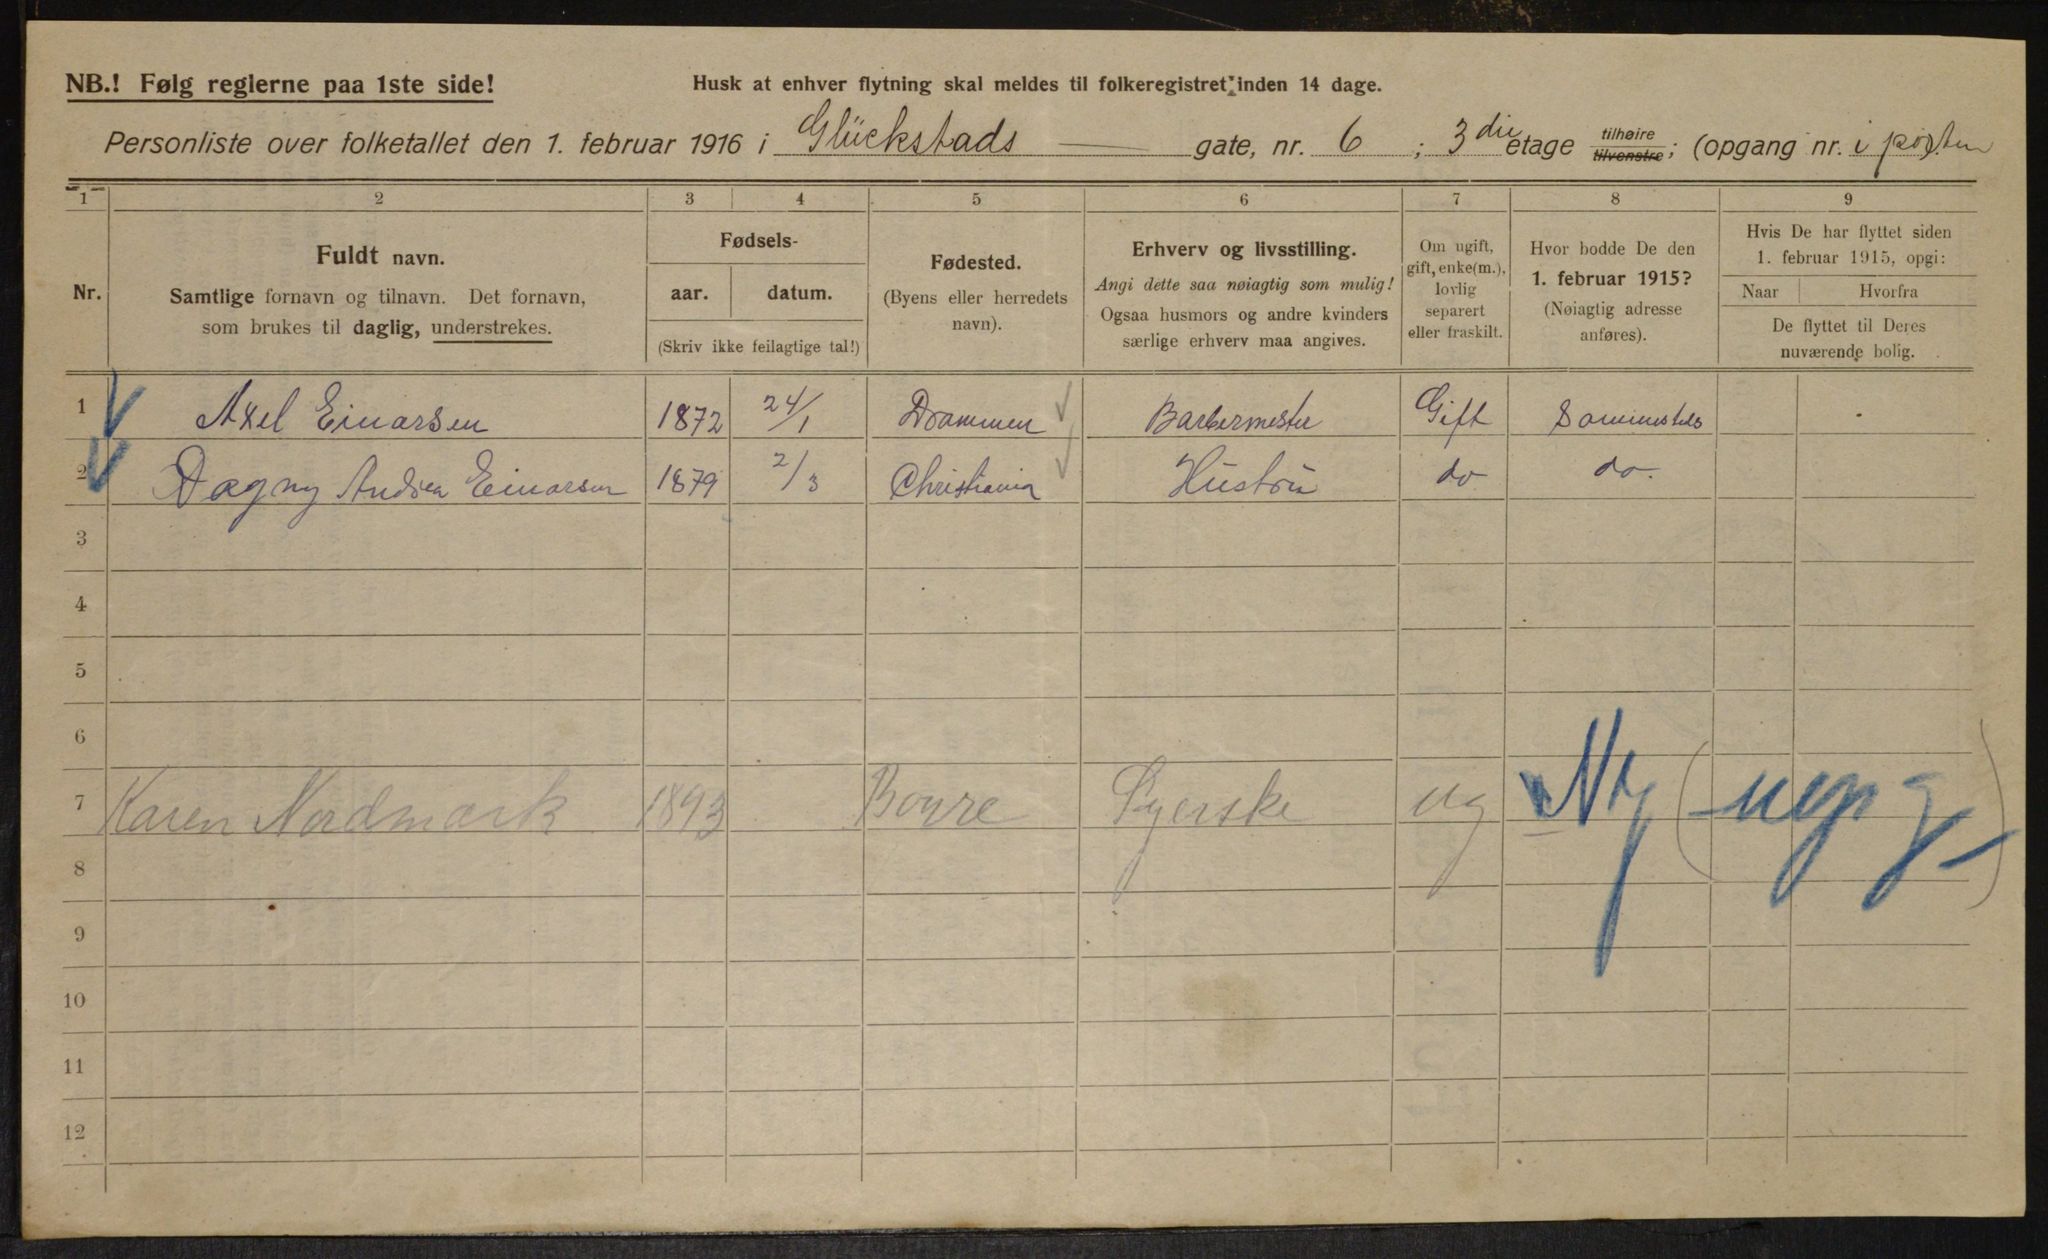 NB.! Følg reglerne paa 1ste side!
Husk at enhver flytning skal meldes til folkeregistret inden 14 dage.
Personliste over folketallet den 1. februar 1916 i Glückstads gate, nr. 6 ; 3 die etage tilhøire tilvenstre; (opgang nr. i porten
1 2 3 4 5 6 7 8 9
Nr.
Fuldt navn.
Samtlige fornavn og tilnavn. Det fornavn,
som brukes til daglig, understrekes.
Fødsels-
aar. datum.
(Skriv ikke feilagtige tal!)
Fødested.
(Byens eller herredets
navn).
Erhverv og livsstilling.
Angi dette saa nøiagtig som mulig!
Ogsaa husmors og andre kvinders
særlige erhverv maa angives.
Om ugift,
gift, enke(m.),
lovlig
separert
eller fraskilt.
Hvor bodde De den
1. februar 1915?
(Nøiagtig adresse
anføres).
Hvis De har flyttet siden
1. februar 1915, opgi:
Naar Hvorfra
De flyttet til Deres
nuværende bolig.
1 Axel Einarsen 1872 24/1 Drammen Barbermester Gift Sammesteds
2 Dagny Andrea Einarsen 1879 2/3 Christiania Hustru do do.
3
4
5
6
7 Karen Nordmark 1893 Borre Syerske ug Ny
8
9
10
11
12